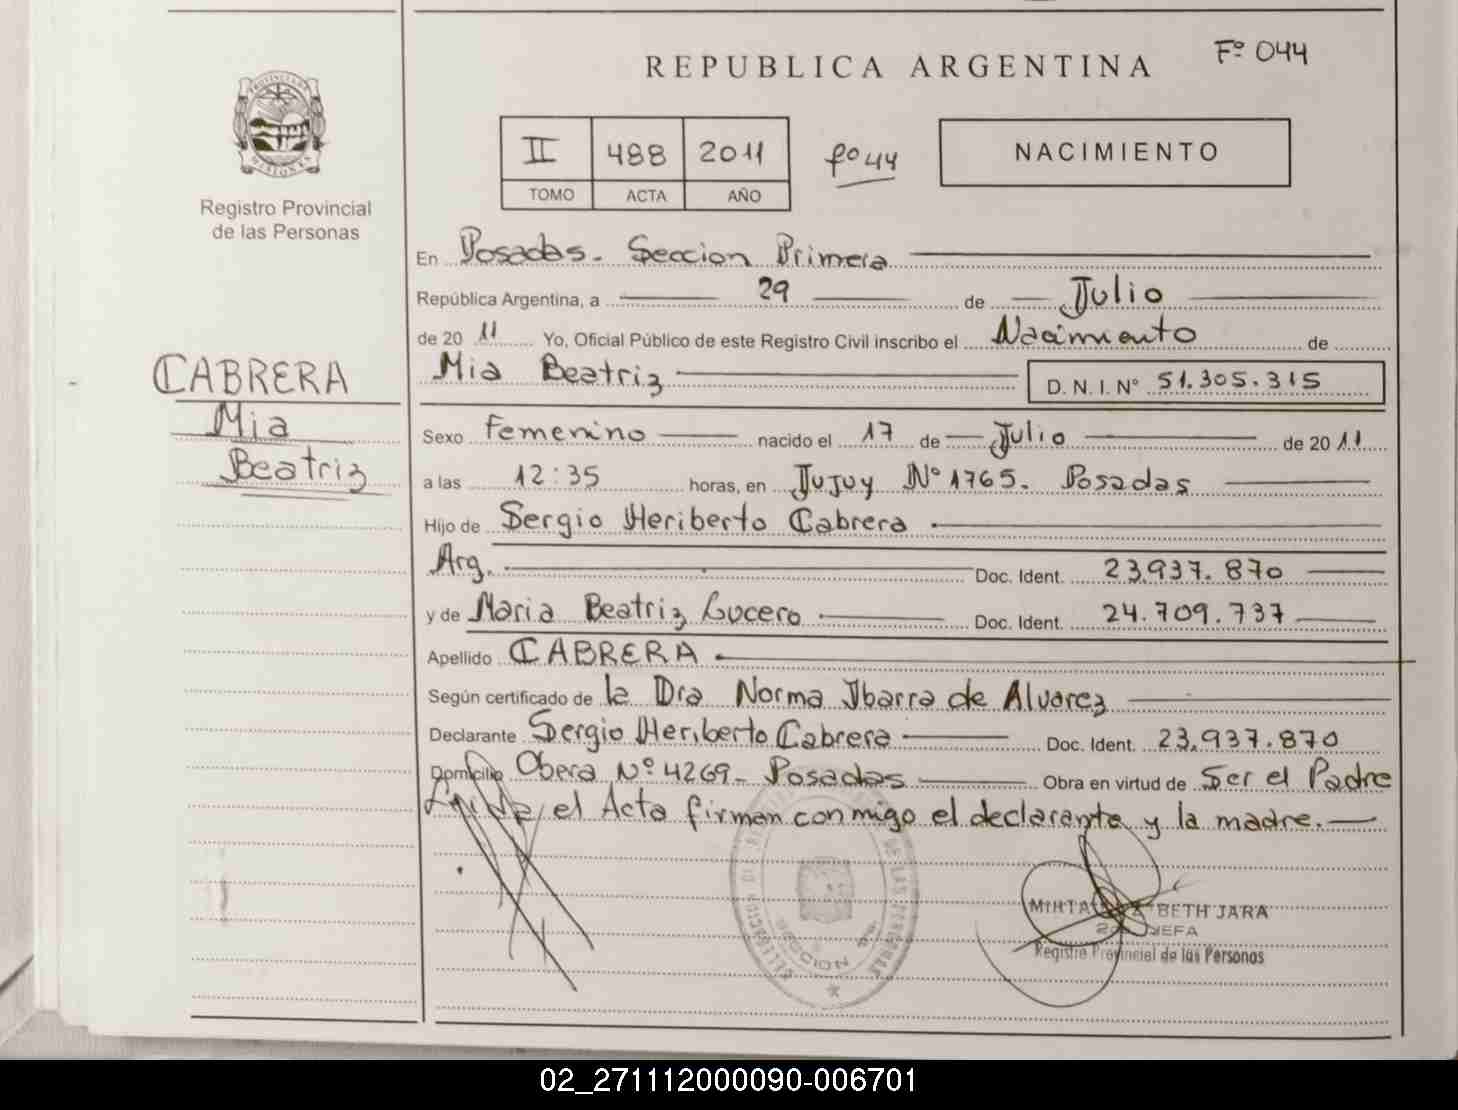 Fº 044
REPUBLICA ARGENTINA
II 488 2011 fº 44
TOMO ACTA AÑO
NACIMIENTO
PROVINCIA DE MISIONES
Registro Provincial
de las Personas
CABRERA
Mia
Beatriz
En Posadas. Seccion Primera
República Argentina, a 29 de Julio
de 20 11 Yo, Oficial Público de este Registro Civil inscribo el Nacimiento de
Mia Beatriz D.N.I. Nº 51.305.315
Sexo Femenino nacido el 17 de Julio de 20 11
a las 12:35 horas, en Jujuy Nº 1765. Posadas
Hijo de Sergio Heriberto Cabrera
Arg. Doc. Ident. 23.937.870
y de Maria Beatriz Lucero Doc. Ident. 24.709.737
Apellido CABRERA
Según certificado de la Dra Norma Ibarra de Alvarez
Declarante Sergio Heriberto Cabrera Doc. Ident. 23.937.870
Domicilio Obera Nº 4269- Posadas Obra en virtud de Ser el Padre
Leida el Acta firman conmigo el declarante y la madre.
SECCION
MIRTA BETH JARA
JEFA
Registro Provincial de las Personas
02_271112000090-006701